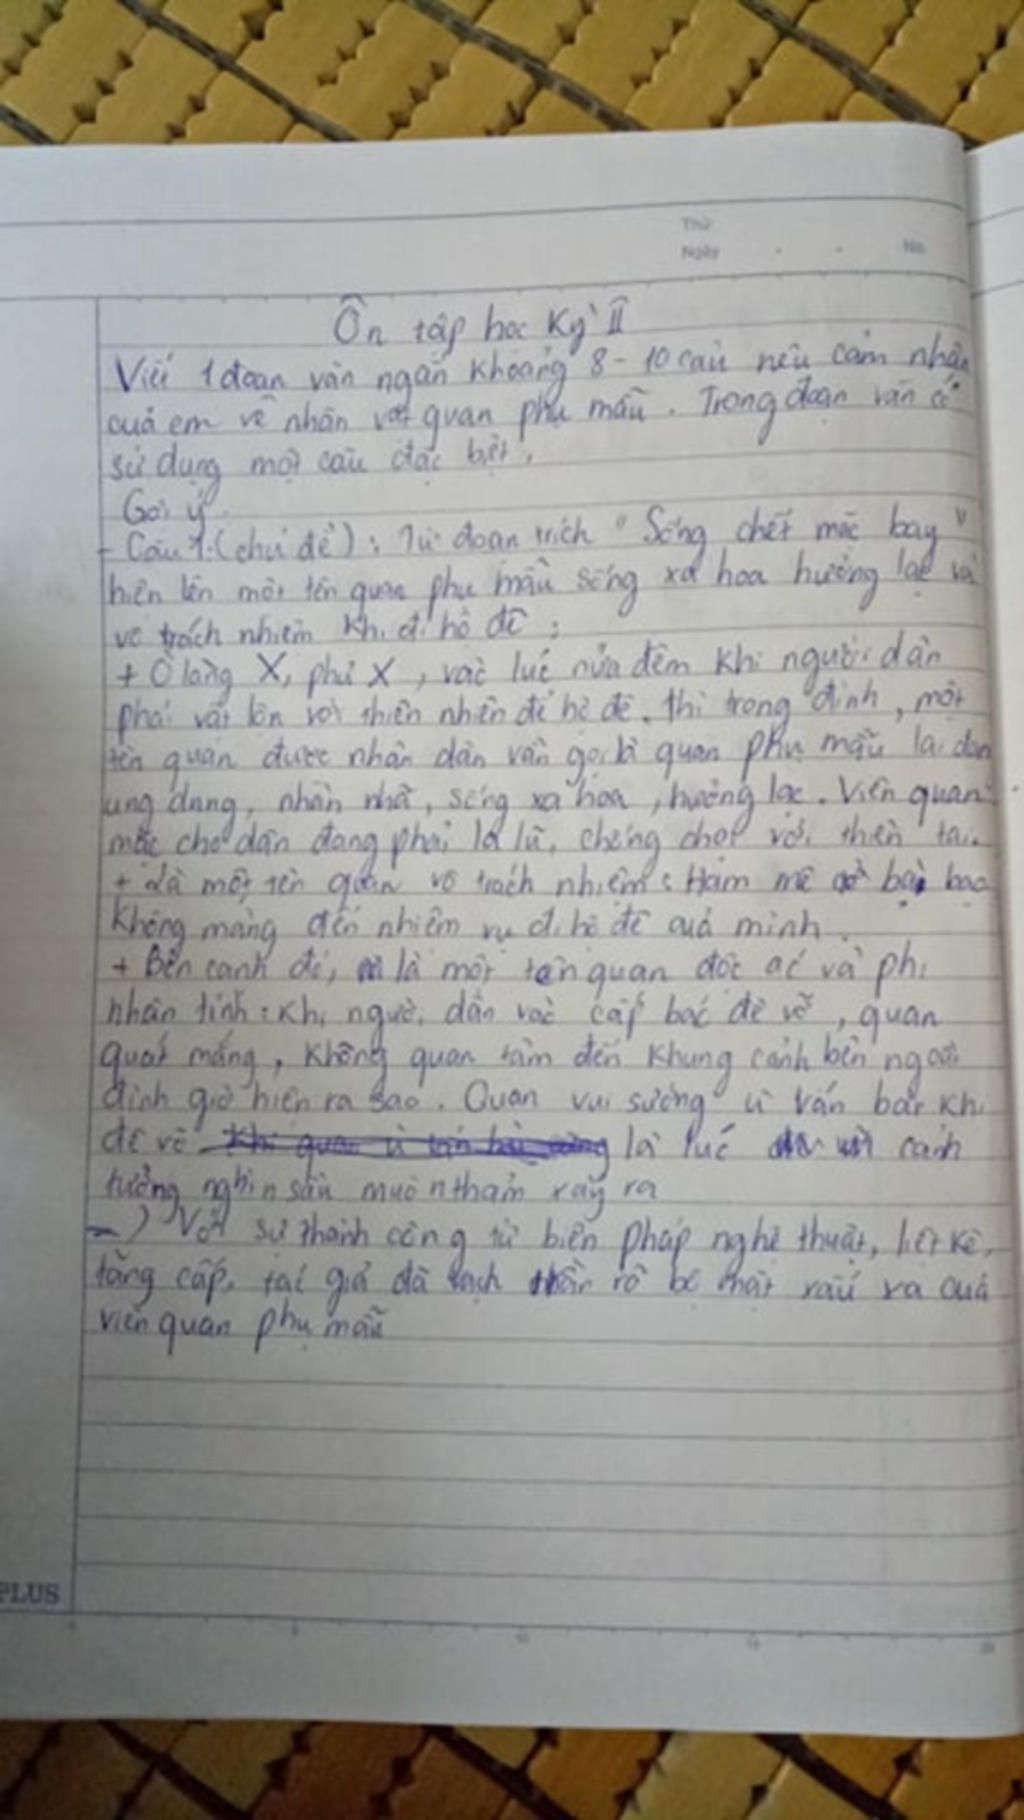 Thứ
Ngày . . No.
Ôn tập học Kỳ II
Viết 1 đoạn văn ngắn khoảng 8-10 câu nêu cảm nhận
của em về nhân vật quan phụ mẫu. Trong đoạn văn có
sử dụng một câu đặc biệt.
Gợi ý
- Câu 1.(chủ đề): Từ đoạn trích "Sống chết mặc bay"
hiện lên một tên quan phụ mẫu sống xa hoa hưởng lạc và
vô trách nhiệm khi đi hộ đê:
+ Ở làng X, phủ X, vào lúc nửa đêm khi người dân
phải vật lộn với thiên nhiên để hộ đê. thì trong đình, một
tên quan được nhân dân vẫn gọi là quan phụ mẫu lại đan
ung dung, nhàn nhã, sống xa hoa, hưởng lạc. Viên quan
mặc cho dân đang phải lo lũ, chống chọi với thiên tai.
+ Là một tên quan vô trách nhiệm: Ham mê bài bạc
không màng đến nhiệm vụ đi hộ đê của mình.
+ Bên cạnh đó, là một tên quan độc ác và phi
nhân tính: Khi người dân vào cấp báo đê vỡ, quan
quát mắng, không quan tâm đến khung cảnh bên ngoài
đình giờ hiện ra sao. Quan vui sướng ù ván bài khi
đê vỡ là lúc cảnh
tưởng nghìn sầu muôn thảm xảy ra
-) Với sự thành công từ biện pháp nghệ thuật, liệt kê,
tăng cấp, tác giả đã vạch trần rõ bộ mặt xấu xa của
viên quan phụ mẫu
PLUS